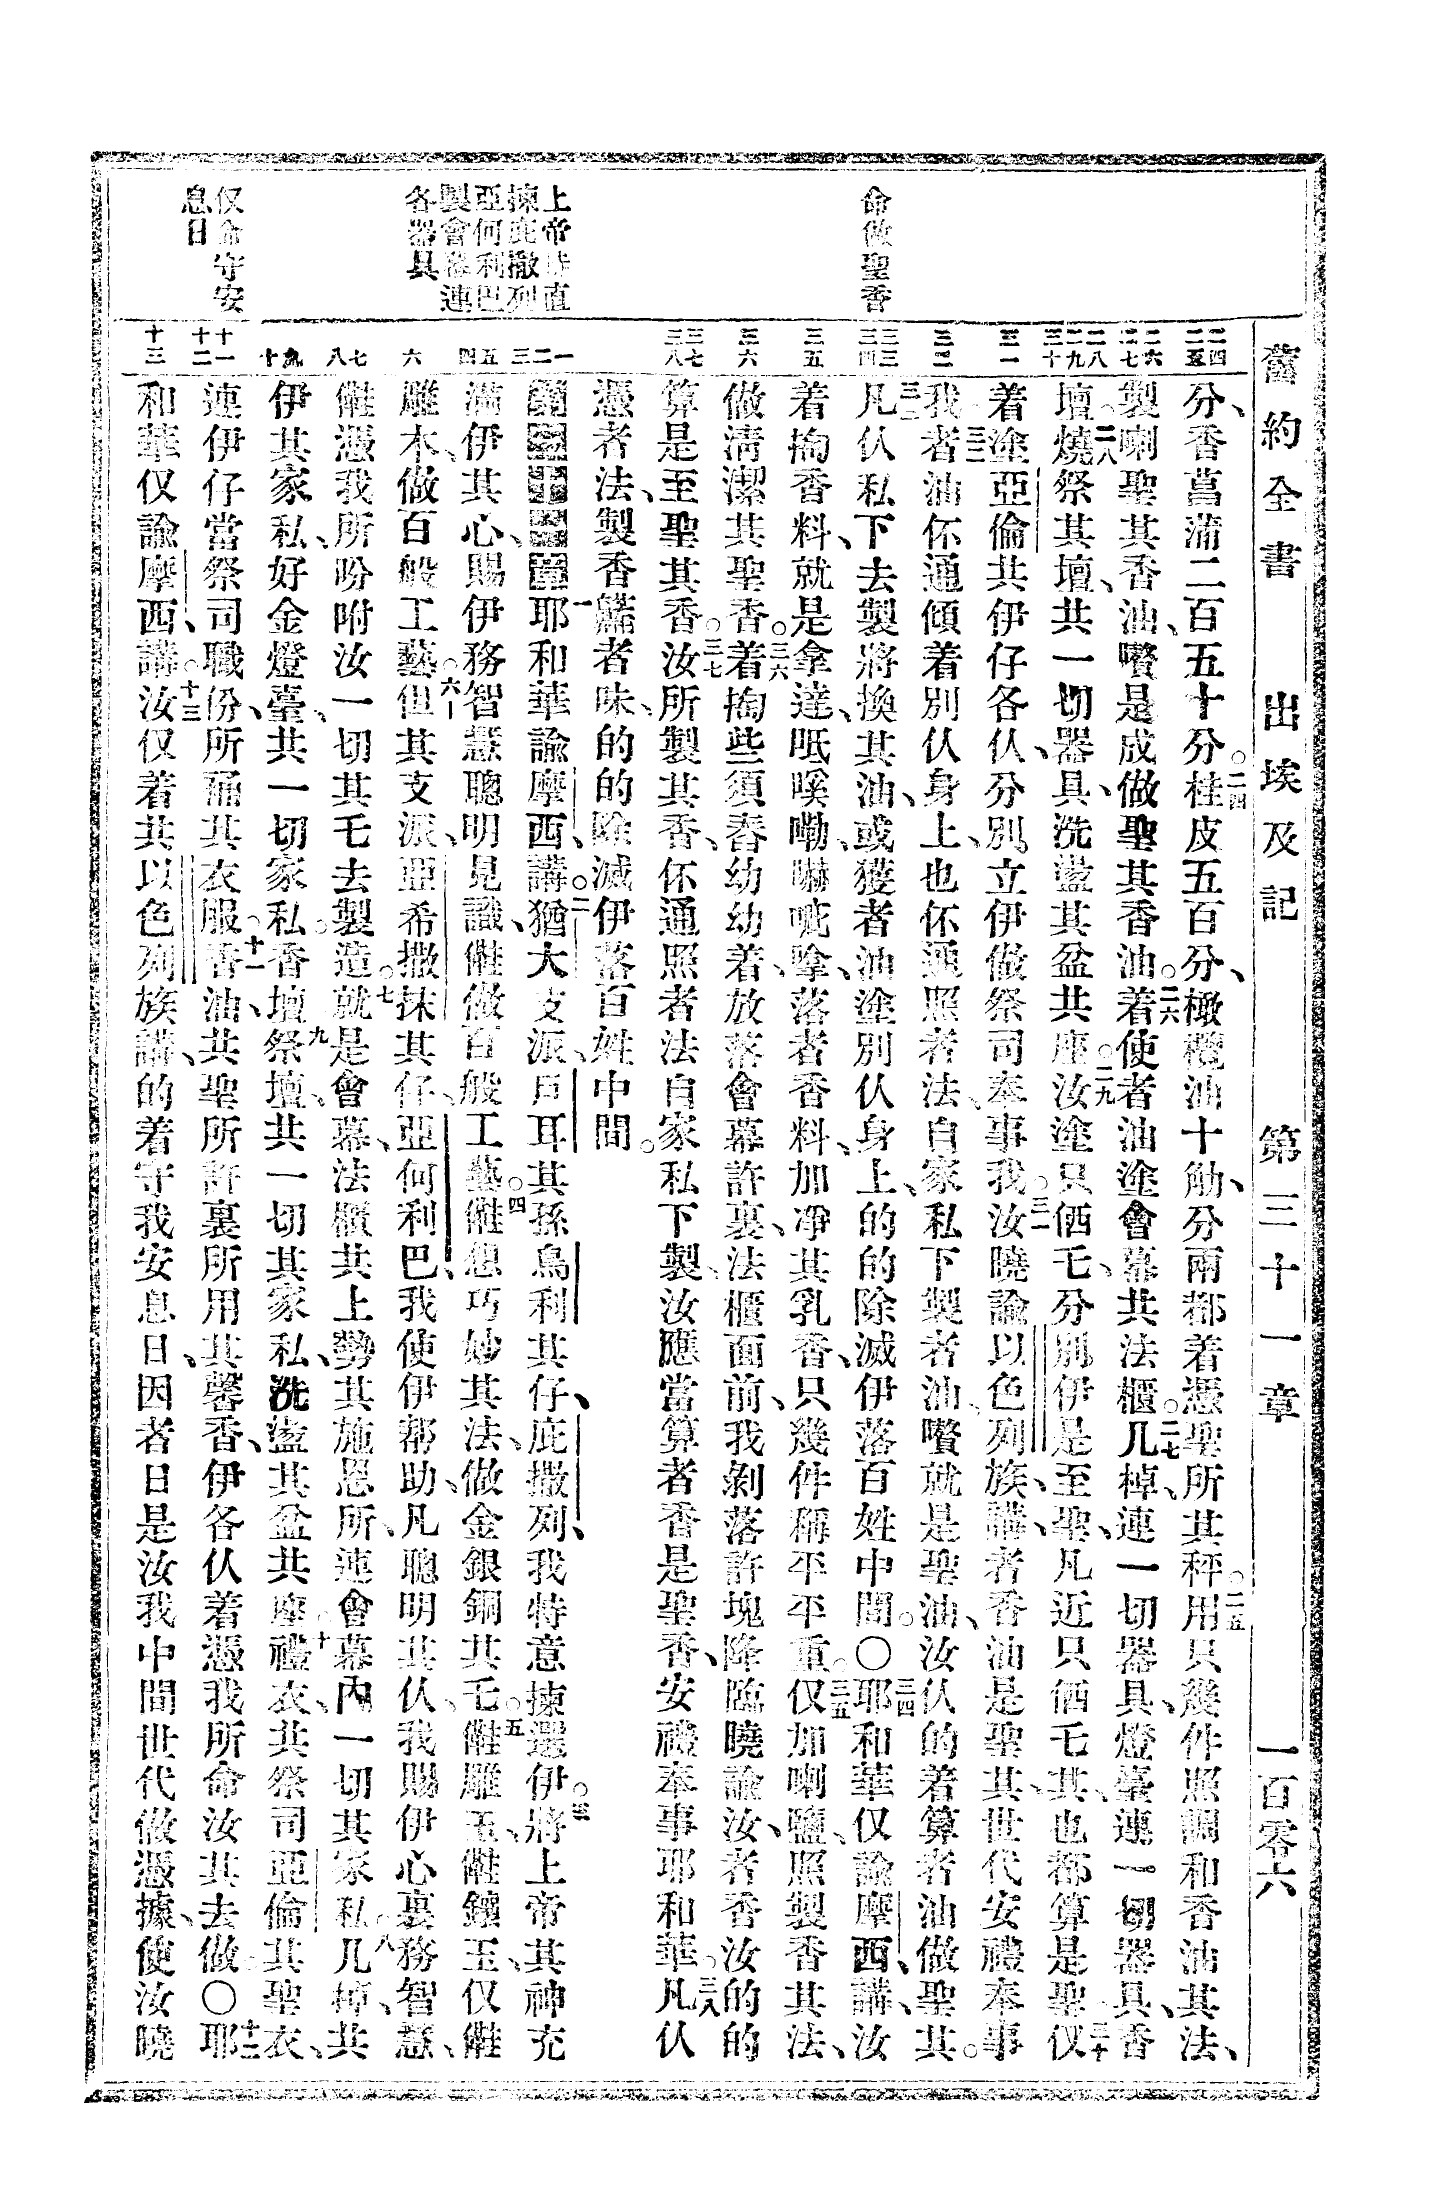 舊約全書　出埃及記　第三十一章　一百零六
命做聖香
上帝特直
揀庇撒列
亞何利巴
製會幕連
各器具
仅命守安
息日
二四 二五
二六 二七
二八 二九 三十
三一
三二
三三 三四
三五
三六
三七 三八
一 二 三
四 五
六
七 八
九 十
十一 十二
十三
分、香菖蒲二百五十分。二四桂皮五百分、橄欖油十觔、分兩都着憑聖所其秤。二五用只幾件照調和香油其法、
製喇聖其香油、嚽是成做聖其香油。二六着使者油塗會幕共法櫃。二七几棹、連一切器具、燈臺連一切器具、香
壇。二八燒祭其壇、共一切器具、洗盪其盆共座。二九汝塗只𠆧乇、分別伊是至聖、凡近只𠆧乇其、也都算是聖。三十仅
着塗亞倫共伊仔各仈、分別立伊做祭司奉事我。三一汝曉諭以色列族、講、者香油是聖其、世代安禮奉事
我。三二者油伓通傾着別仈身上、也伓通照者法、自家私下製者油、嚽就是聖油、汝仈的着算者油做聖其。
三三凡仈私下去製將換其油、或獲者油塗別仈身上、的的除滅伊落百姓中間。〇三四耶和華仅諭摩西、講、汝
着掏香料、就是拿達、呧嘆嘞、嚇呲㗛、落者香料、加凈其乳香、只幾件稱平平重。三五仅加喇鹽、照製香其法、
做清潔其聖香。三六着掏些須舂幼幼着、放落會幕許裏、法櫃面前、我剝落許塊降臨曉諭汝、者香汝的的
算是至聖其香。三七汝所製其香、伓通照者法自家私下製、汝應當算者香是聖香、安禮奉事耶和華。三八凡仈
憑者法、製香鼸者味、的的除滅伊落百姓中間。
第三十一章一耶和華諭摩西、講。二猶大支派、戶耳其孫、烏利其仔、庇撒列、我特意揀選伊。三將上帝其神充
滿伊其心、賜伊務智慧聰明見識、㑤做百般工藝。四㑤想巧妙其法、做金銀銅其乇。五㑤雕玉、㑤鑲玉、仅㑤
雕木、做百般工藝。六但其支派、亞希撒抹其仔、亞何利巴、我使伊幫助、凡聰明其仈、我賜伊心裏務智慧、
㑤憑我所吩咐汝一切其乇去製造。七就是會幕、法櫃共上勢其施恩所、連會幕內一切其家私。八几棹、共
伊其家私、好金燈臺、共一切家私。香壇九祭壇、共一切其家私、洗盪其盆共座。十禮衣、共祭司亞倫其聖衣、
連伊仔當祭司職份、所穿其衣服。十一香油、共聖所許裏所用其馨香、伊各仈着憑我所命汝其去做。〇十二耶
和華仅諭摩西、講。十三汝仅着共以色列族講、的着守我安息日、因者日是汝我中間世代做憑據、使汝曉